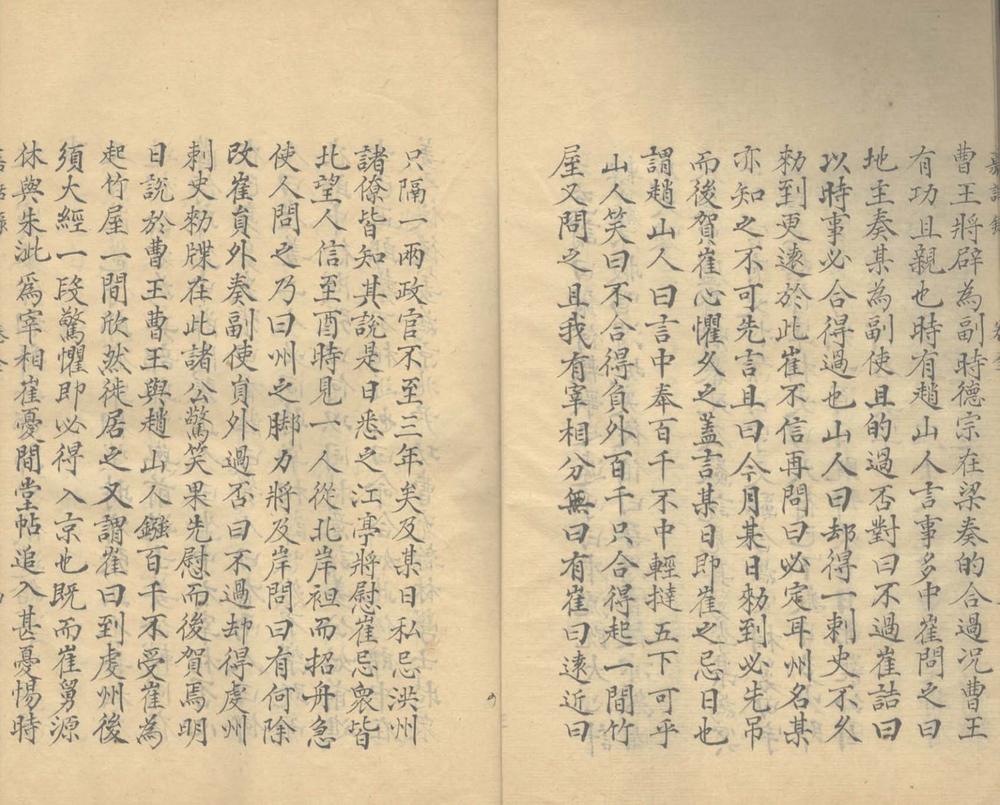 曹王將辟為副時德宗在梁奏的合過况曹王
有功且親也時有趙山人言事多中崔問之曰
地主奏某為副使且的過否對曰不過崔詰曰
以時事必合得過也山人曰却得一刺史不久
勑到更遠於此崔不信再問曰必定耳州名某
亦知之不可先言且曰今月某日勑到必先吊
而後賀崔心懼久之蓋言某日即崔之忌日也
謂趙山人曰言中奉百千不中輕撻五下可乎
山人笑曰不合得負外百千只合得起一間竹
屋又問之且我有宰相分無曰有崔曰遠近曰
只隔一兩政官不至三年矣及某日私忌洪州
諸僚皆知其說是日悉之江亭將慰崔忌衆皆
北望人信至酉時見一人從北岸袒而招舟急
使人問之乃曰州之脚力將及岸問曰有何除
改崔貟外奏副使貟外過否曰不過却得虔州
刺史勑牒在此諸公驚笑果先慰而後賀焉明
日說於曹王曹王與趙山人鏹百千不受崔為
起竹屋一間欣然徙居之又謂崔曰到虔州後
須大經一段驚懼即必得入京也既而崔舅源
休與朱泚為宰相崔憂間堂帖追入甚憂惕時